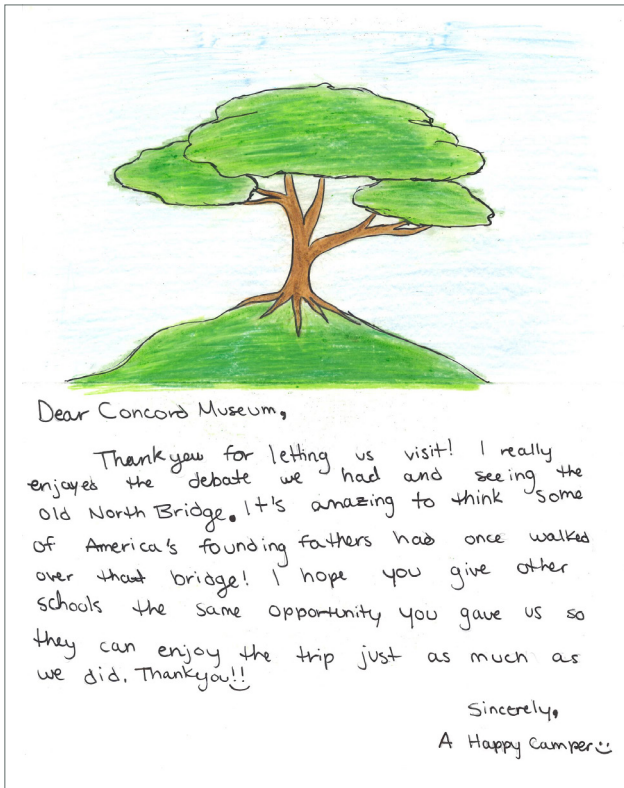 Dear Concord Museum,
Thank you for letting us visit! I really
enjoyed the debate we had and seeing the
old North Bridge. It's amazing to think some
of America's founding fathers had once walked
over that bridge! I hope you give other
schools the same opportunity you gave us so
they can enjoy the trip just as much as
we did. Thankyou!!
Sincerely,
A Happy Camper